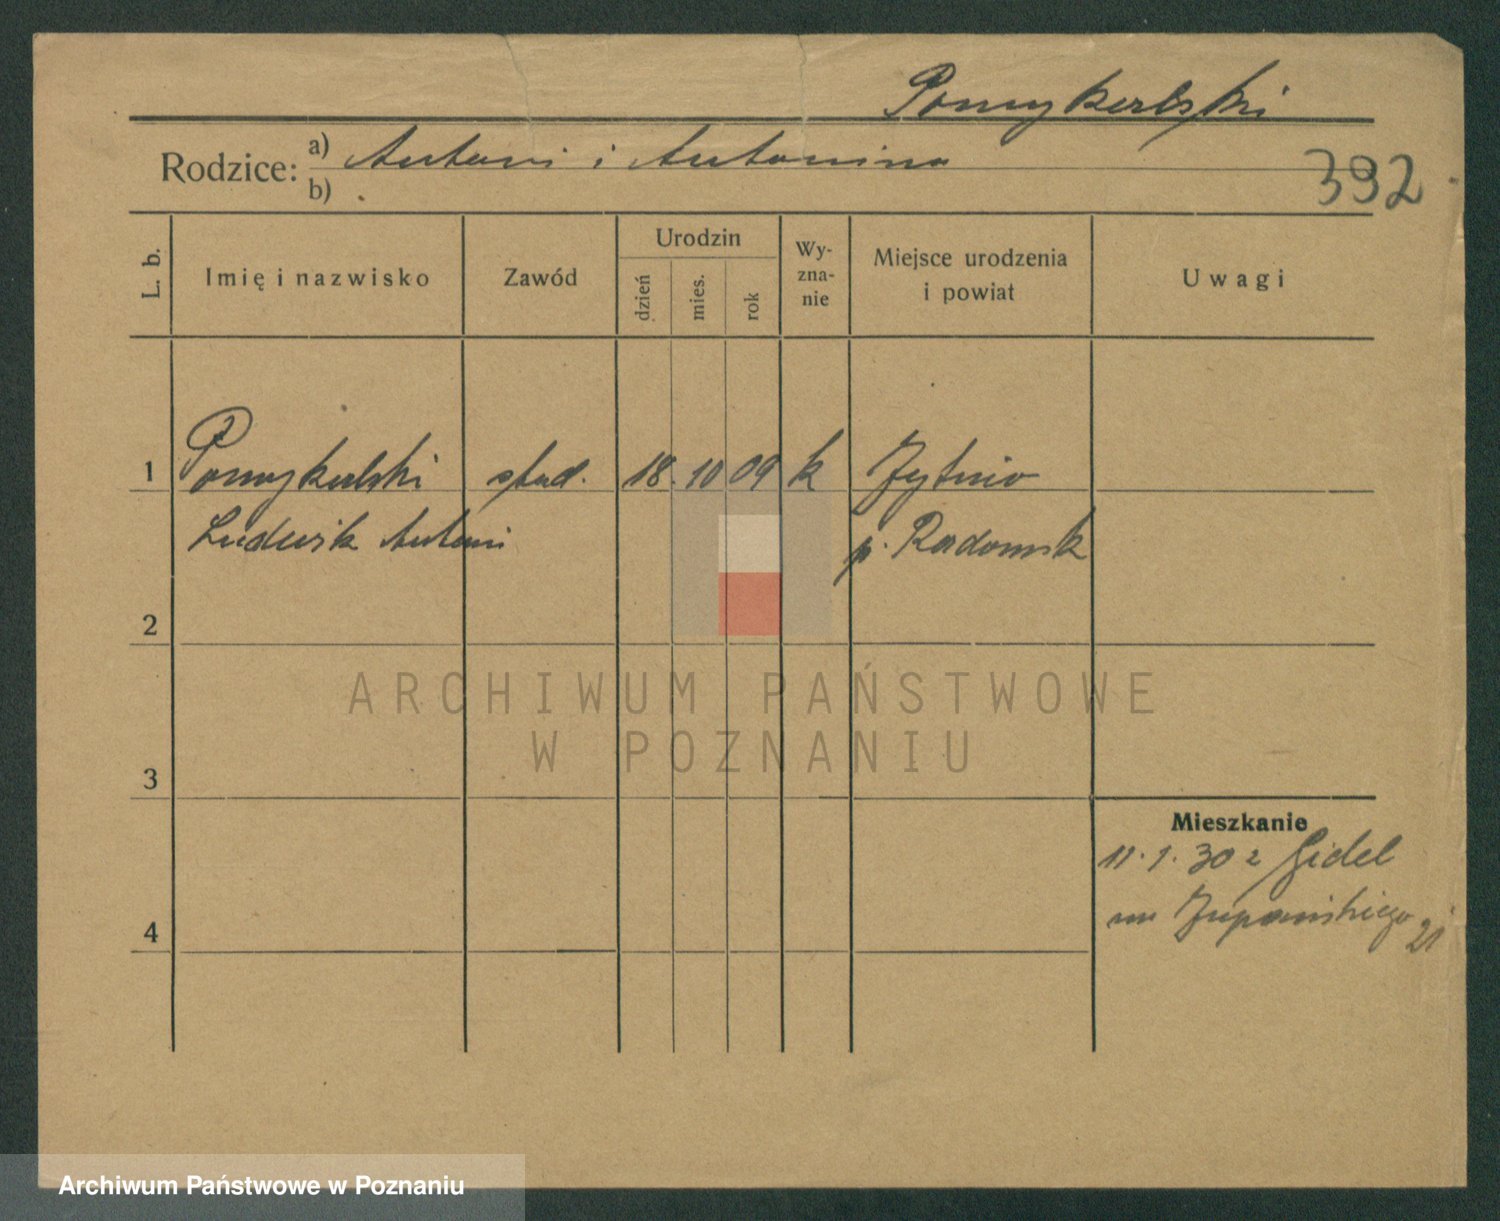 Pomykalski
Rodzice: a) Antoni i Antonina
b)
392
L. b.
Imię i nazwisko
Zawód
Urodzin
dzień
mies.
rok
Wy-
zna-
nie
Miejsce urodzenia
i powiat
Uwagi
1 Pomykalski stud. 18. 10 09 k Żytno
Ludwik Antoni p. Radomsk
2
3
Mieszkanie
11. 1. 30 z Gidel
4
Żupańskiego 21
ARCHIWUM PAŃSTWOWE
W POZNANIU
Archiwum Państwowe w Poznaniu